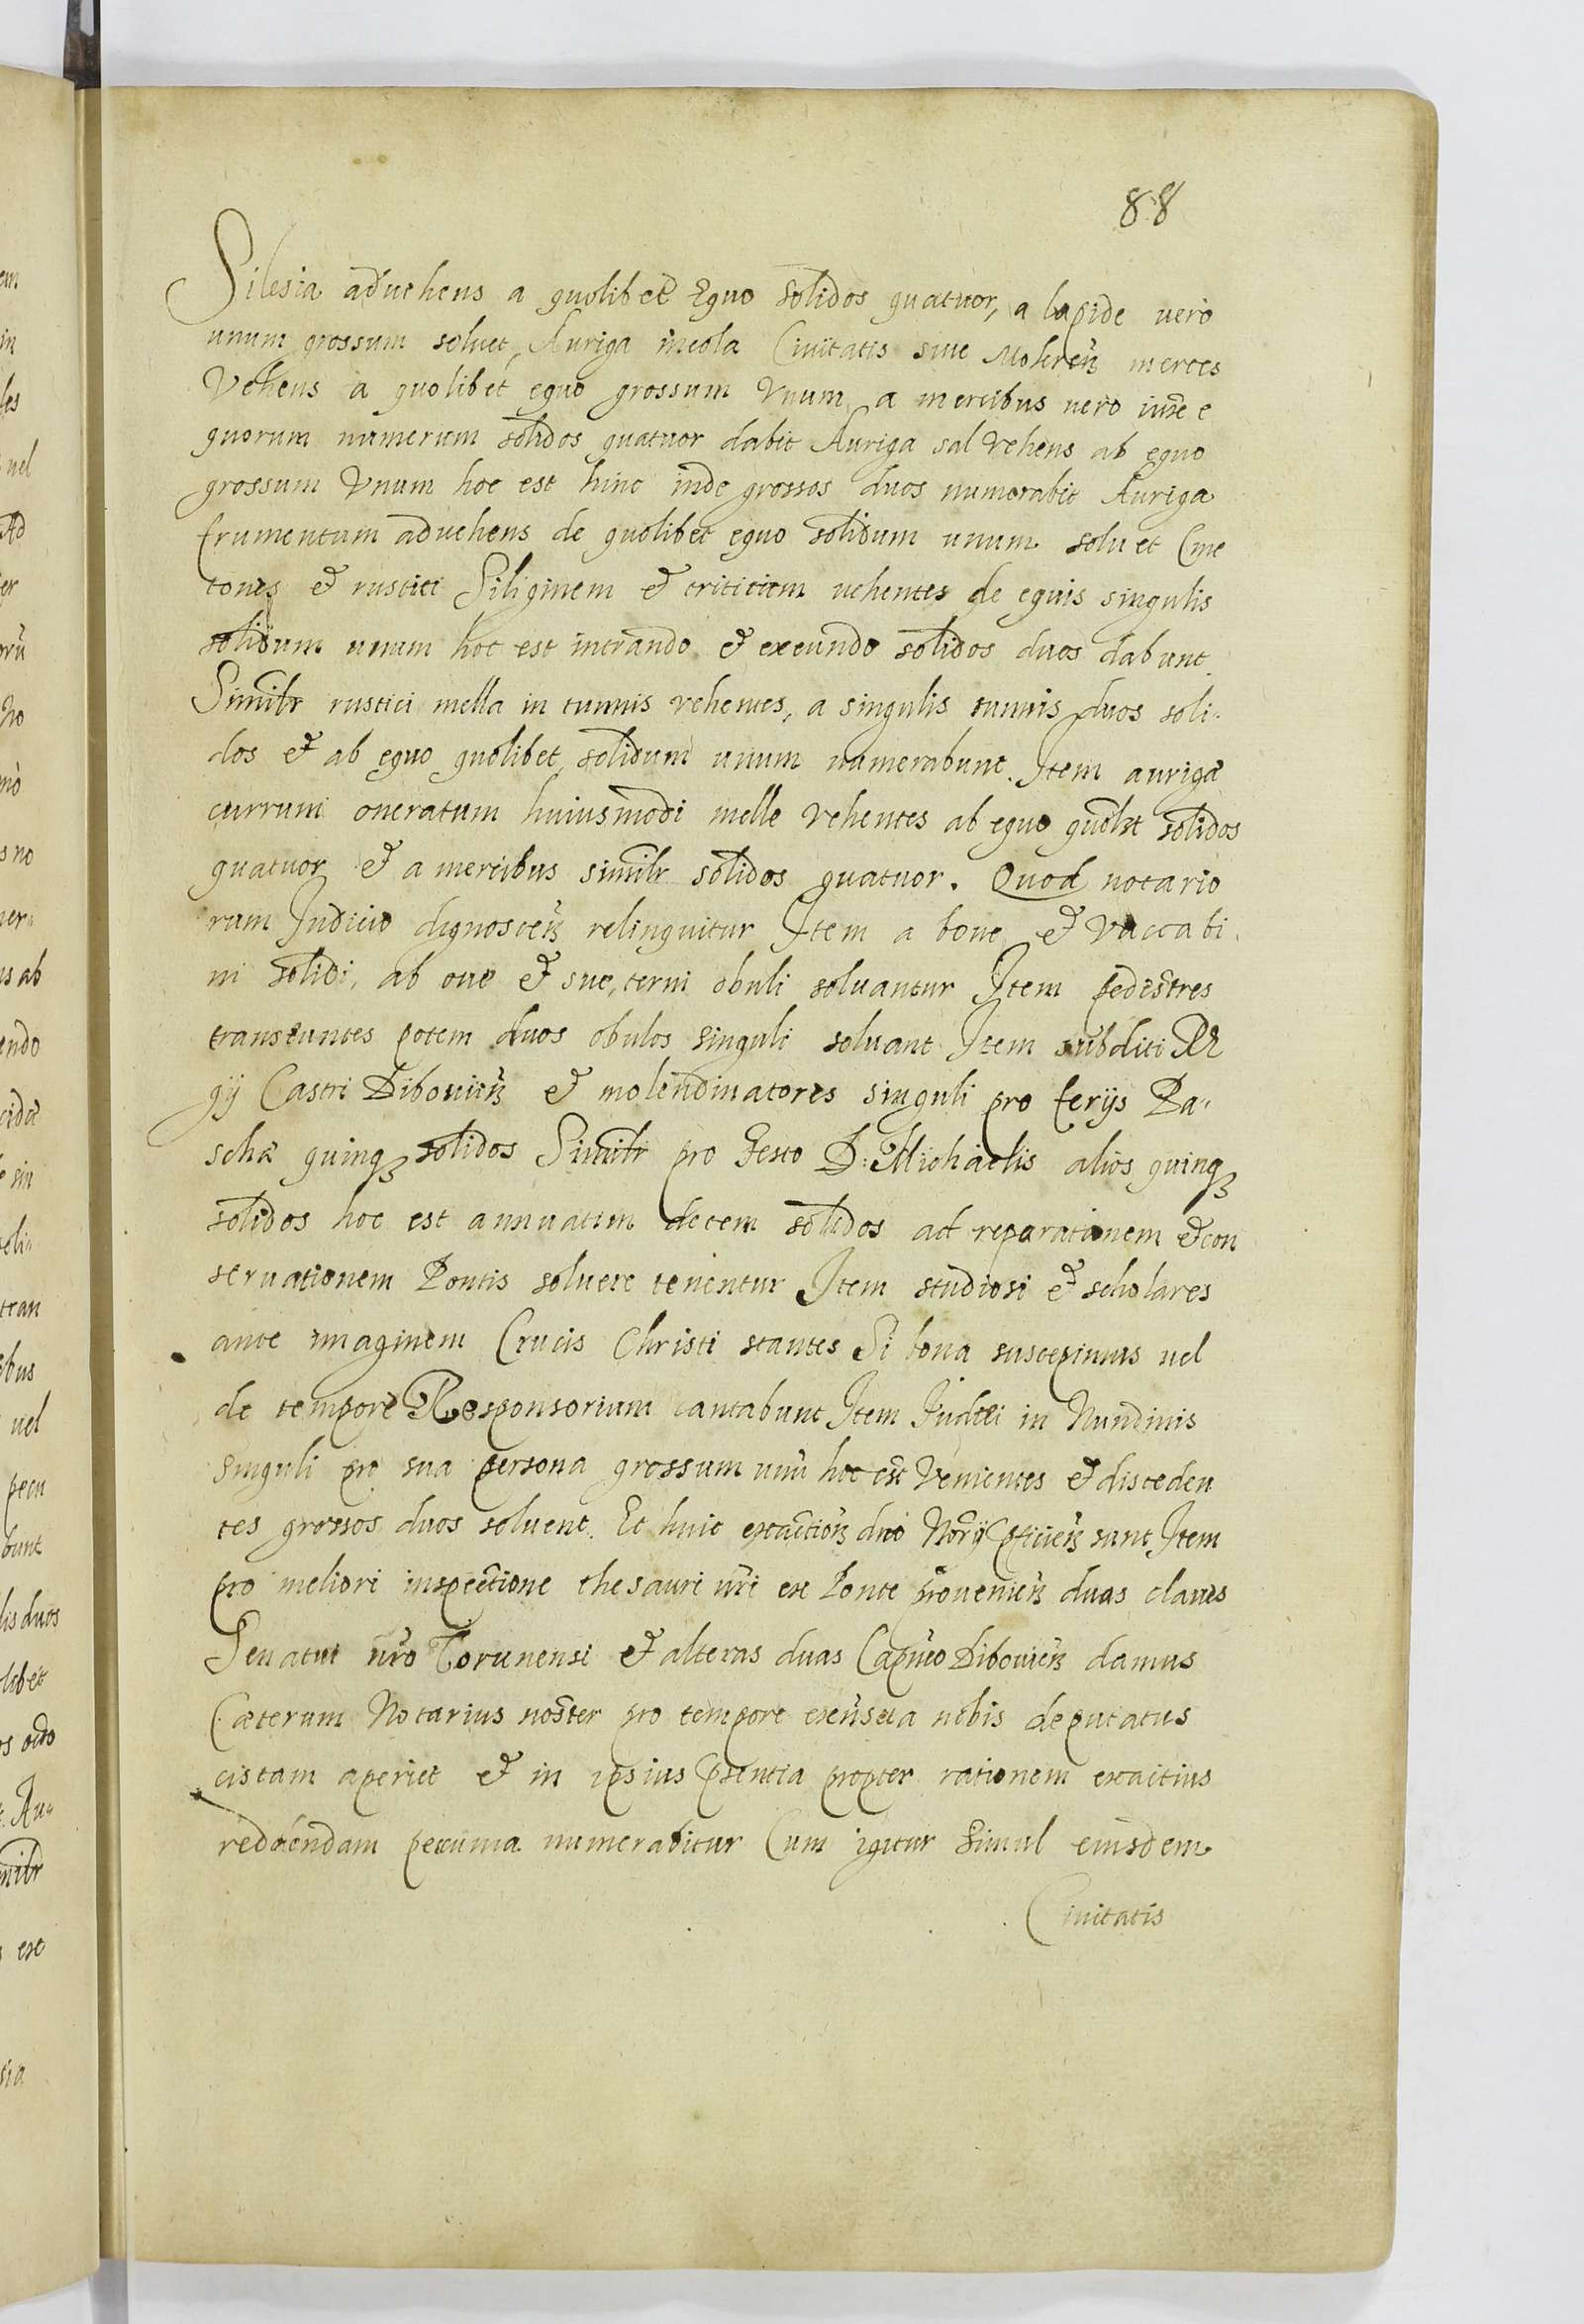 88
Silesia aduehens a quolibet Equo solidos quatuor, a lapide uero
unum grossum soluet, Auriga incola Ciuitatis siue merces
Vehens a quolibet equo grossum Vnum, a mercibus uero iuxe e
quorum numerum solidos quatuor dabit Auriga sal Vehens ab equo
grossum Vnum hoc est hinc inde grossos duos numerabit Auriga
frumentum aduehens de quolibet equo solidum unum soluet Cme
tones et rustici Siliginem et triticum uehentes de equis singulis
solidum unum hoc est intrando et exeundo solidos duos dabunt.
Similr rustici mella in tunnis vehentes, a singulis tunnis duos soli-
dos et ab equo quolibet solidum unum numerabunt. Item aurigæ
currum oneratum huiusmodi melle vehentes ab equo quolrt solidos
quatuor et a mercibus similr solidos quatuor. Quod notario
rum Iudicio relinquitur Item a boue et Vacca bi
ni solidi, ab oue et sue, terni obuli soluantur Item pedestres
transeuntes potem duos obulos singuli soluant Item subditi Re
gij Castri Diboviens et molendinatores singuli pro ferijs Pa-
schæ quinq solidos Similr pro Festo D: Michaelis alios quinq
solidos hoc est annuatim decem solidos ad reparationem et con
seruationem Pontis soluere tenentur Item studiosi et scholares
ante imaginem Crucis Christi stantes Si bona suscepimus uel
de tempore Responsorium cantabunt Item Iudæi in Nundinis
Singuli pro sua persona grossum unū hoc est Venientes et disceden
tes grossos duos soluent. Et huic duo Norij sunt Item
pro meliori inspectione thesauri nri ex Ponte proueniens duas claues
Senatui nro Torunensi et alteras duas Capneo Diboviens damus
Cæterum Notarius noster pro tempore a nobis deputatus
cistam aperiet et in ipsius pñtia propter rationem exactius
reddendam pecunia numerabitur Cum igitur Simul eiusdem
Ciuitatis